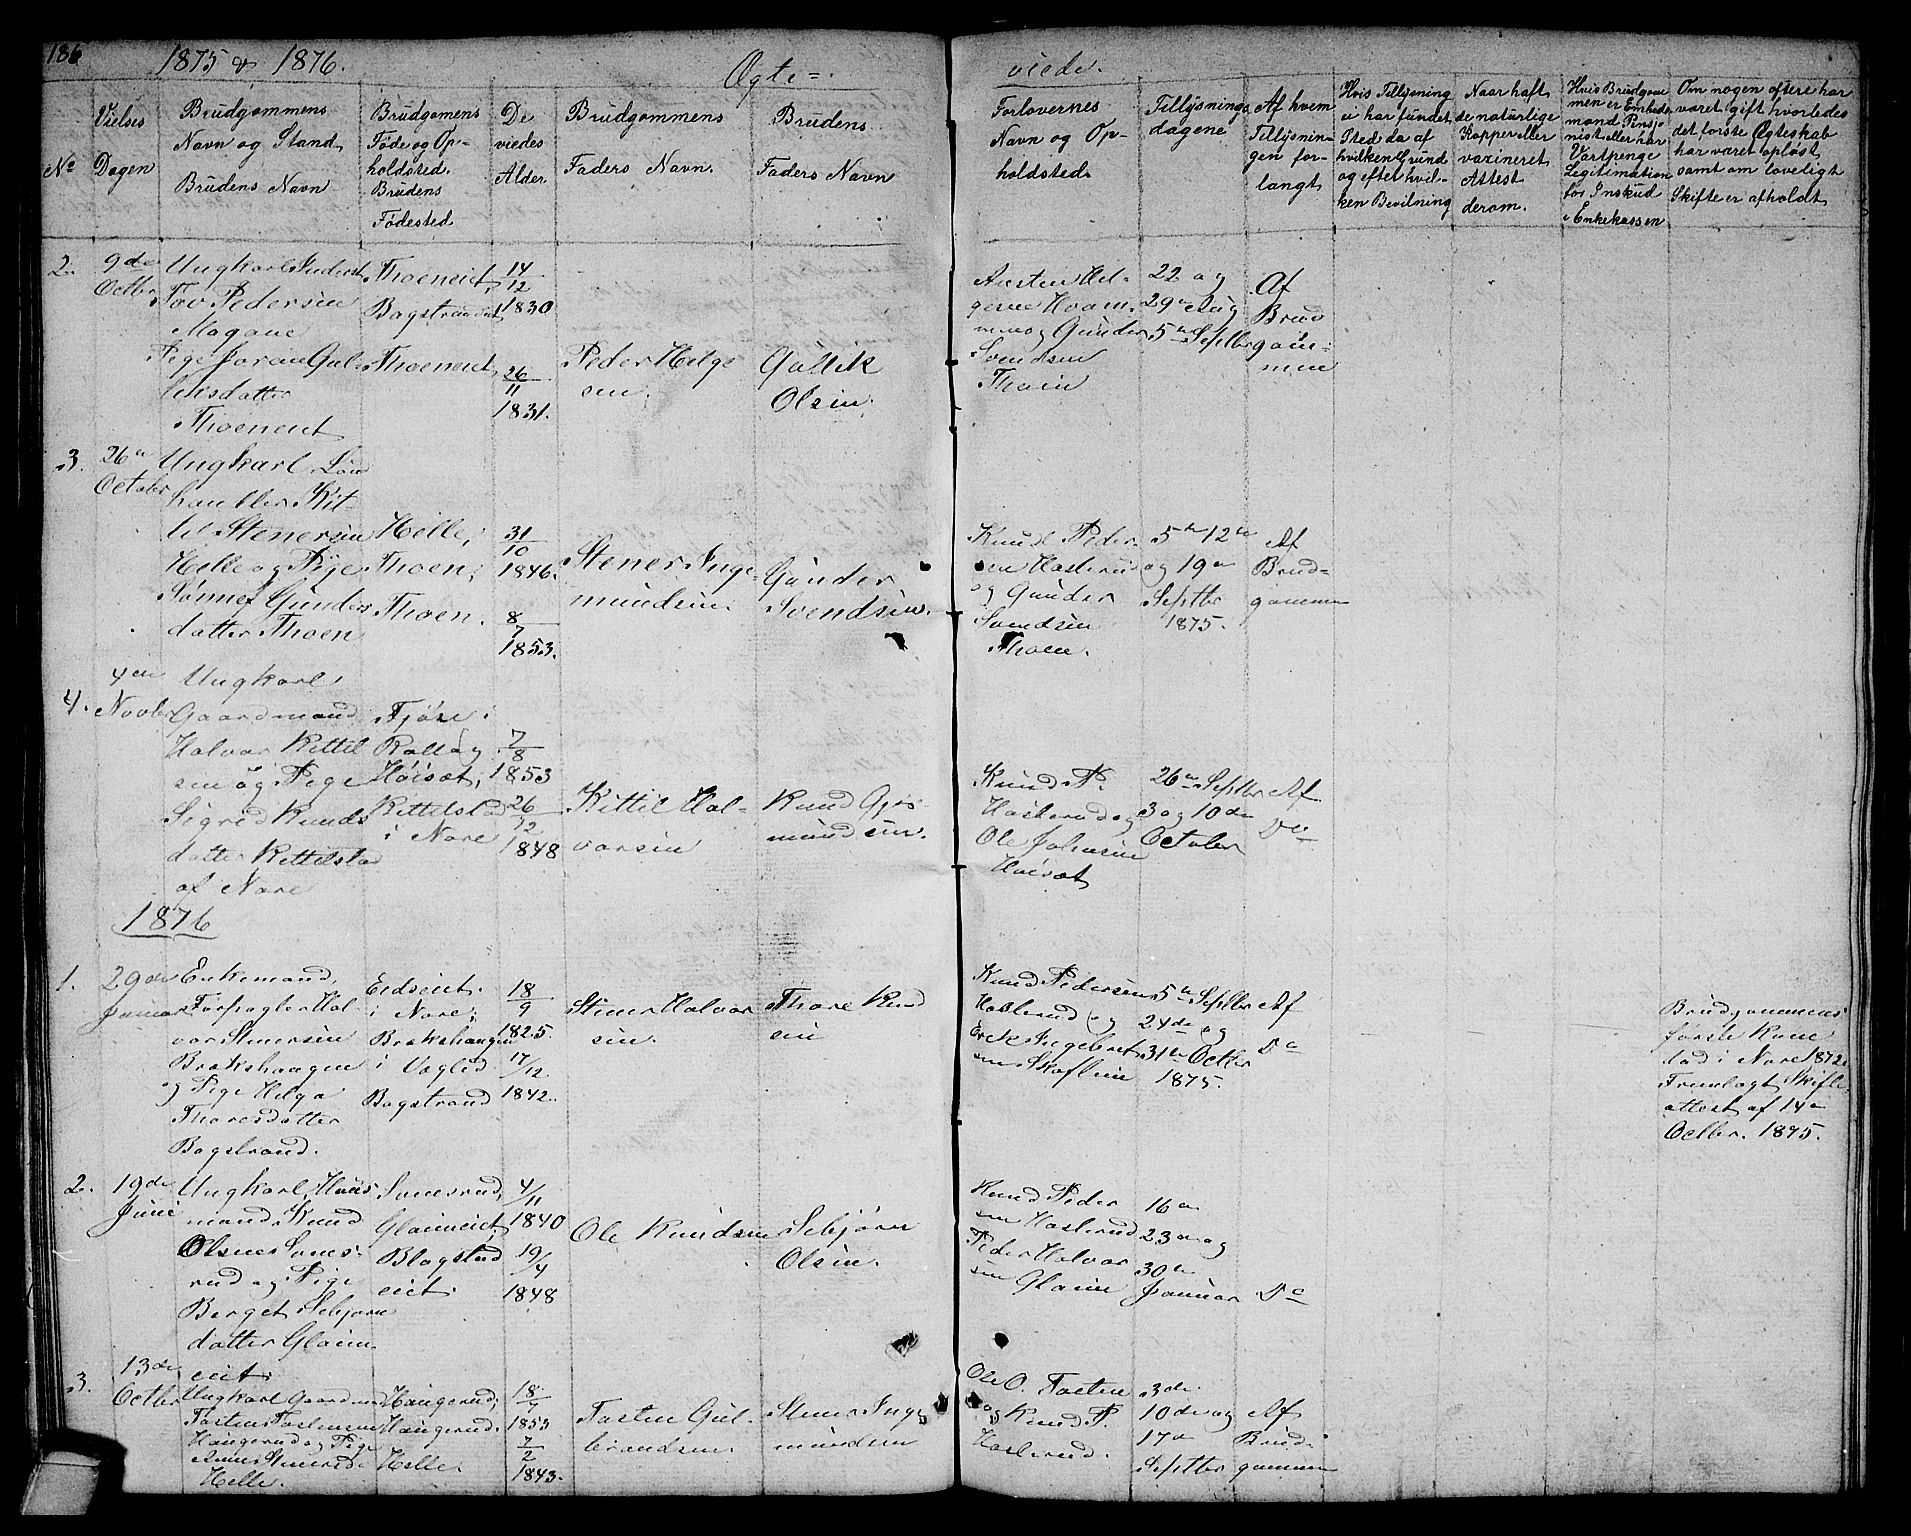 186
1875 & 1876.
Ægte=
viede.
No
Vielses
Dagen
Brudgommens
Navn og Stand
Brudens Navn
Brudgomens
Føde og Op-
holdsted.
Brudens
Fødested
De
viedes
Alder.
Brudgommens
Faders Navn.
Brudens
Faders Navn
Forlovernes
Navn og Op-
holdsted.
Tillysnings
dagene
Af hvem
Tillysnin-
gen for-
langt
Hvis Tillysning
ei har fundet
Sted da af
hvilken Grund
og efter hvil-
ken Bevilning
Naar haft
de natürlige
Kopper eller
vaxineret
Attest
derom.
Hvis Brudgom
men er Embeds
mand Pensio
nist eller har
Vartpenge
Legitimation
for Inskud
i Enkekassen
Om nogen oftere har
været gift hvorledes
det første Ægteskab
har været opløst
samt om lovligt
Skifte er afholdt
2.
9de
Octbr
Ungkarl
Tov Pedersen
Magane
Pige Joran Gul-
liksdatter
Thoeneiet
Thoeneiet,
Thoeneiet
14/12
1830
26/11
1831.
Peder Helge
sen.
Gullik
Olsen.
Austen Hel-
og Gunder
Svendsen
Thoen
22 og
29de Aug
5te Septbr
Af
Brud
gom-
men
3.
26de
October
Ungkarl
handler Kit-
til Stenersen
Helle og Pige
Sønnef Gunders
datter Thoen
Helle,
Thoen,
Thoen.
31/10
1846.
8/7
1853.
Stener Inge-
mundsen.
Gunder
Svendsen.
Knud Peder-
sen Haslerud
og Gunder
Svendsen
Thoen.
5te 12te
og 19de
Septbr
1875.
Af
Brud-
gommen
4.
4de
Novbr
Ungkarl
Gaardmand
Halvor Kittil
sen og Pige
Sigred Knuds
datter Kittilslad
af Nore
Fjøse i
Rollag
Høisæt,
Kittilslad
i Nore
7/8
1853
26/12
1848
Kittil Hal-
vorsen
Knud Gjos-
mundsen.
Knud P.
Haslerud og
Ole Johnsen
Høisæt
26de Septbr
3 og 10de
October
Af
Do
1876
1.
29de
Januar
Enkemand,
Forpagter Hal-
vor Stenersen
Brakshaugen
og Pige Helga
Thoresdatter
Bagstrand.
Eidseiet
i Nore,
Brakshaugen
i Vegled
Bagstrand
18/9
1825.
17/12
1842.
Stener Halvor
sen.
Thore Knud
sen
Knud Pedersen
Haslerud og
Erek Ingebret
sen Skaflein
5te Septbr
24de og
31te Octbr
1875.
Af
Do
Brudgommens
første Kone
død i Nore 1872.
Fremlagt Skifte
attest af 14de
Octbr. 1875.
2.
19de
Juni
Ungkarl, Huus
mand, Knud
Olsen Soms-
rud og Pige
Berget Sebjørns
datter Glaim
eiet.
Somsrud,
Glaimeiet,
Blagstad
eiet.
4/11
1840
19/4
1848
Ole Knudsen
Sebjørn
Olsen.
Knud Peder
sen Haslerud
Peder Halvor
sen Glaim
16de
23de og
30te
Januar
Do
3.
13de
Octbr
Ungkarl Gaardman
Tosten Tostensen
Haugerud og Pige
Anne Stenersd.
Helle.
Haugerud,
Haugerud.
Helle.
18/7
1853
7/2
1843.
Tosten Gul-
brandsen.
Stener Inge
mundsen
Ole O. Tosten
og Knud P.
Haslerud.
3de
10de og
17de
Septbr
Af
Brud-
gommen